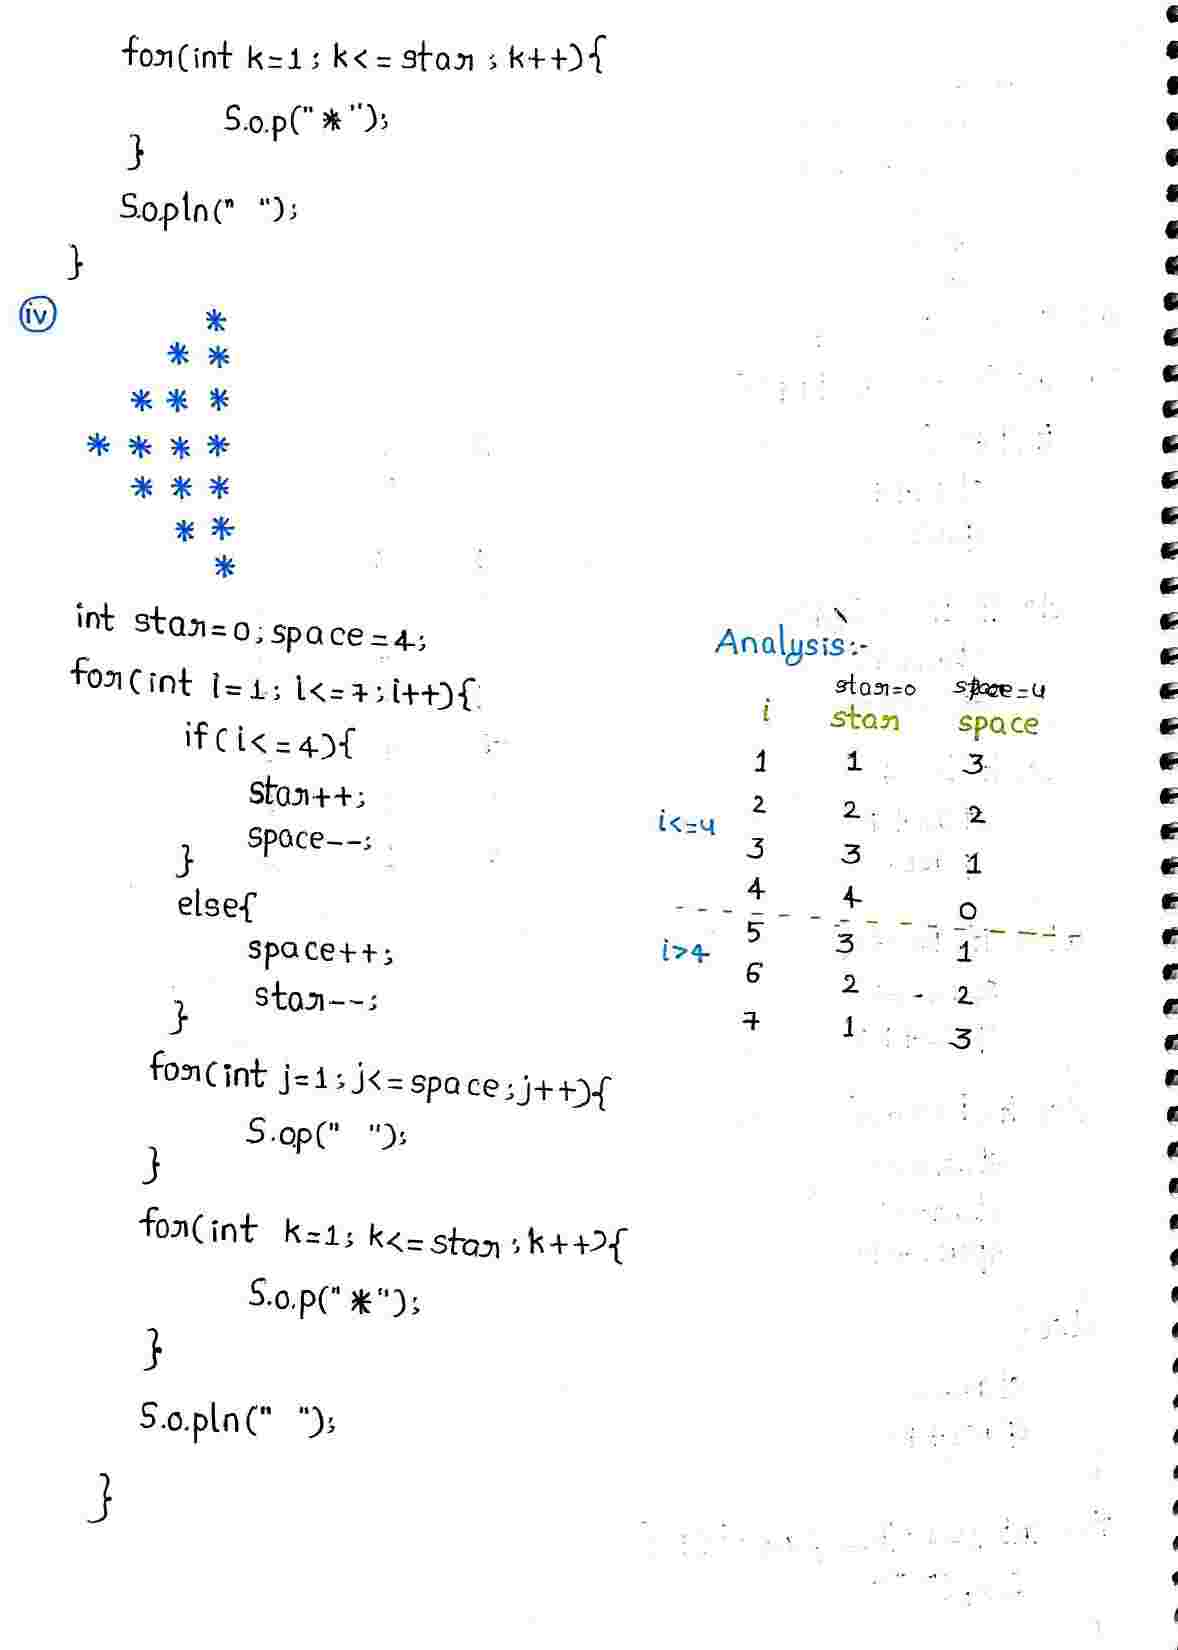 for(int k=1; k<=star; k++){
S.o.p("*");
}
S.o.pln(" ");
}
iv
*
* *
* * *
* * * *
* * *
* *
*
int star=0; space=4;
for(int i=1; i<=7; i++){
if(i<=4){
star++;
space--;
}
else{
space++;
star--;
}
for(int j=1; j<=space; j++){
S.op(" ");
}
for(int k=1; k<=star; k++){
S.o.p("*");
}
S.o.pln(" ");
}
Analysis:-
star=0 space=4
i star space
1 1 3
2 2 2
i<=4
3 3 1
4 4 0
5 3 1
i>4
6 2 2
7 1 3